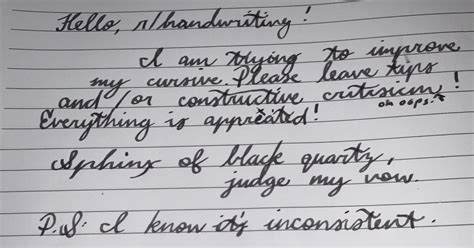 Hello, r/handwriting!
I am trying to improve
my cursive. Please leave tips
and/or constructive critisism!
oh oops.
Everything is appreated!
Sphinx of black quartz,
judge my vow.
P.S. I know it's inconsistent.